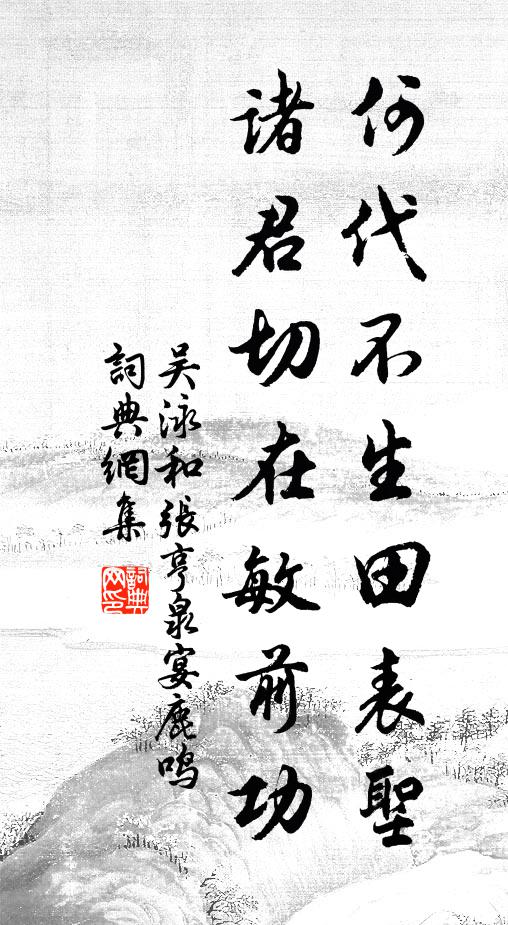 何代不生田表聖
諸君切在敏前功
吴泳和張亨泉宴鹿鸣
詞典網集
詞典网印